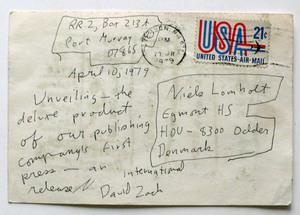 RR2, Box 213A
Port Murray
07865
April 10, 1979
Unveiling – the
deluxe product
of our publishing
company's first
press – an international
release!!
David Zack
PM
1979
USA 21c
UNITED STATES AIR MAIL
Niels Lomholt
Egmont HS
HOU - 8300 Odder
Denmark